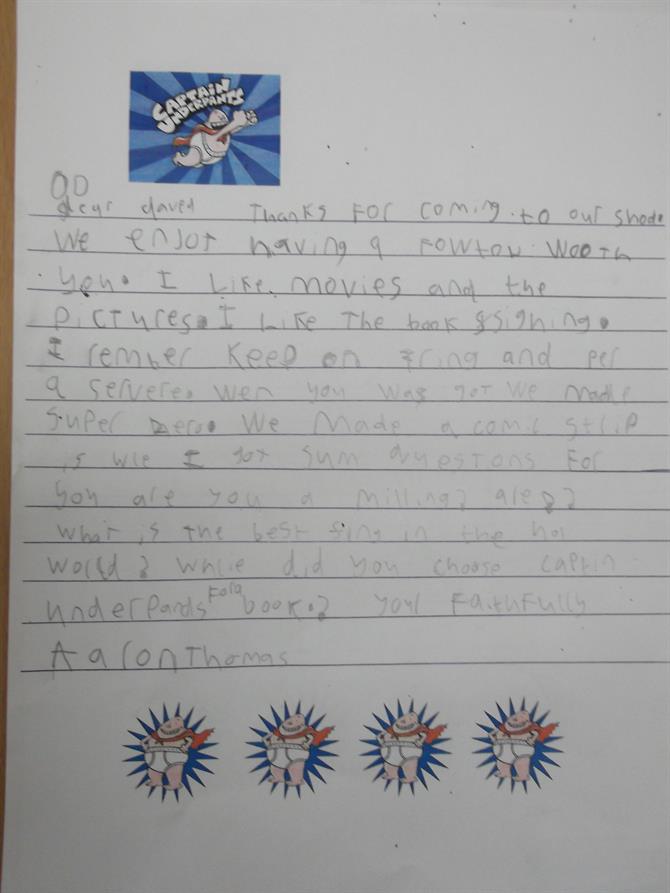 CAPTAIN
UNDERPANTS
OD
dear daved Thanks For coming to our shode
We enjot having a Fowtow Wooth
you. I Like movies and the
Pictures. I Like The book signing.
I rember keep on tring and per
a servere. wen you was got We made
Super heros. We Made a comic strip
is wie I got sum questons For
you are you a milling? are?
What is the best fing in the hol
World? While did you choose Captin
underpands Fora book.? your Faithfully
Aaron Thomas